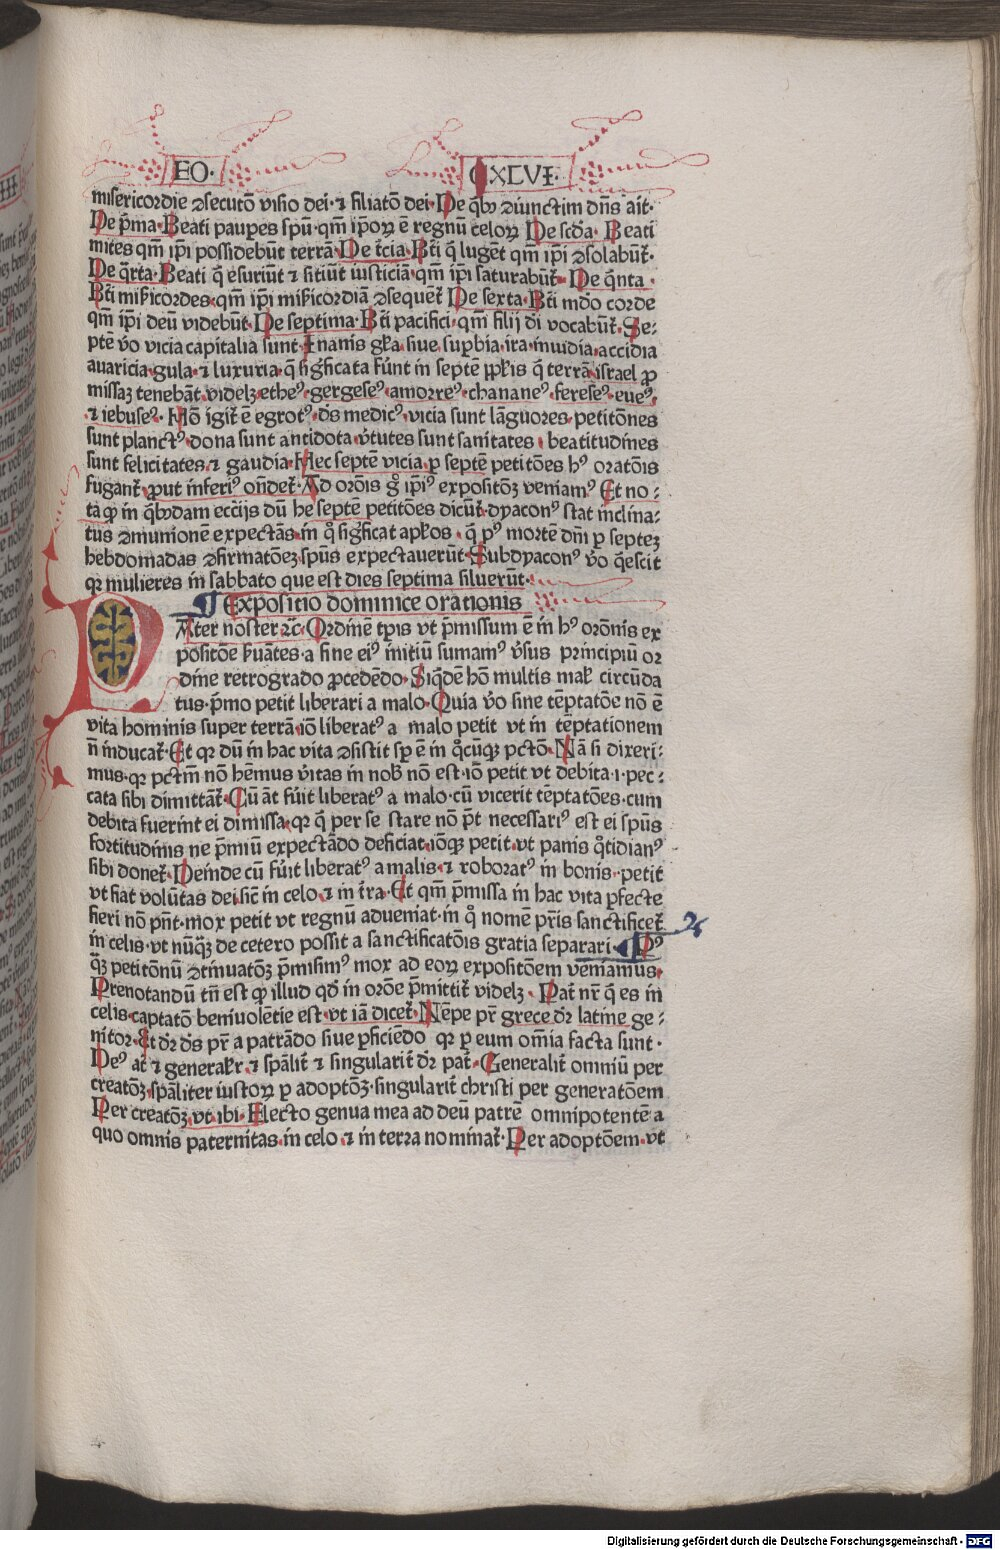 EO· CXLVI·
misericordie ꝯsecutō visio dei·⁊ filiatō dei·De q̄bꝰ ꝯiunctim dn̄s ait·
De p̄ma·Beati paupes spū·qm̄ ip̄oꝝ ē regnū celoꝝ De scd̄a·Beati
mites qm̄ ip̄i possidebūt terrā·De t̄cia·Bt̄i q̄ lugēt qm̄ ip̄i ꝯsolabūt᷑·
De q̄rta·Beati q̄ esuriūt ⁊ sitiūt iusticiā·qm̄ ip̄i saturabūt᷑·De q̄nta·
Bt̄i mi̅ẜicordes·qm̄ ip̄i mi̅ẜicordiā ꝯsequēt᷑ De sexta·Bt̄i mūdo corde
qm̄ ip̄i deū videbūt·De septima·Bt̄i pacifici·qm̄ filij di̅ vocabūt᷑·Se⸗
ptē v̄o vicia capitalia sunt·Inanis gl̄a siue supbia·ira·inuidia·accidia
auaricia·gula·⁊ luxuria·q̄ sig̅ficata fūnt in septē pp̄lis q̄ terrā israel ꝓ
missaꝫ tenebāt·videlꝫ·etheꝰ·gergeseꝰ·amorreꝰ·chananeꝰ·fereseꝰ·eueꝰ·
⁊ iebuseꝰ·Hō igit᷑ ē egrotꝰ·ds̄ medicꝰ·vicia sunt lāguores·petitōnes
sunt planctꝰ·dona sunt antidota·v̄tutes sunt sanitates·beatitudines
sunt felicitates·⁊ gaudia·Hec septē vicia·ꝑ septē petitōes hꝰ oratōis
fugant᷑·ꝓut inferiꝰ ondet᷑·Ad orōis g̊ ip̄iꝰ expositōꝫ veniamꝰ Et no⸗
ta ꝙ in q̄bꝰdam eccl̄ijs dū he septē petitōes dicūt᷑·dyaconꝰ stat inclina⸗
tus ꝯmunionē expectās·in q̊ sig̅ficat ap̄los·q̄ pꝰ mortē dn̄i ꝑ septeꝫ
hebdomadas ꝯfirmatōeꝫ·spūs expectauerūt·Subdyaconꝰ v̄o q̄escit
qꝛ mulieres in sabbato que est dies septima siluerūt·
¶ Expositio dominice orationis
PAter noster ⁊c̄·Ordinē tp̄is vt p̄missum ē in hꝰ orōnis ex
positōe ẜuātes·a fine eiꝰ initiū sumamꝰ v̄sus principiū or
dine retrogrado ꝓcedēdo·Siq̄dē hō multis mal᷑ circūda
tus·p̄mo petit liberari a malo·Quia v̄o sine tēptatōe nō ē
vita hominis super terrā·iō liberatꝰ a malo petit vt in tēptationem
n̄ inducat᷑·Et qꝛ dū in hac vita ꝯsistit sp̄ ē in q̊cūqꝫ pctō·Nā si dixeri⸗
mus·qꝛ pctm̄ nō hēmus v̄itas in nob̄ nō est·iō petit vt debita·i·pec⸗
cata sibi dimittāt᷑·Cū āt fūit liberatꝰ a malo·cū vicerit tēptatōes·cum
debita fuerint ei dimissa·qꝛ q̄ per se stare nō p̄t necessariꝰ est ei spūs
fortitudinis ne p̄miū expectādo deficiat·iōqꝫ petit·vt panis q̊tidianꝰ
sibi donet᷑·Deinde cū fūit liberatꝰ a malis·⁊ roboratꝰ in bonis·petit
vt fiat volūtas dei·sic̄ in celo·⁊ in t̄ra·Et qm̄ p̄missa in hac vita ꝑfecte
fieri nō pn̄t·mox petit vt regnū adueniat·in q̊ nomē pr̄is sanctificet᷑
in celis·vt nūq̄ꝫ de cetero possit a sanctificatōis gratia separari·¶ Pꝰ
q̄ꝫ petitōnū ꝯtinuatōꝫ p̄misimꝰ mox ad eoꝝ expositōem veniamus·
Prenotandū tn̄ est ꝙ illud qd̄ in orōe p̄mittit᷑ videlꝫ·Pat̄ nr̄ q̄ es in
celis·captatō beniuolētie est·vt iā dicet᷑·Nēpe pr̄ grece dr̄ latine ge⸗
nitor·Et dr̄ ds̄ pr̄ a patrādo siue ꝑficiēdo qꝛ ꝑ eum om̄ia facta sunt·
Deꝰ at̄ ⁊ general᷑r·⁊ spāliť ⁊ singulariť dr̄ pat̄·Generaliť omniū per
creatōꝫ·spāliter iustoꝝ ꝑ adoptōꝫ·singulariť christi per generatōem
Per creatōꝫ·vt ibi·Flecto genua mea ad deū patrē omnipotentē a
quo omnis paternitas·in celo·⁊ in terra nominat᷑·Per adoptōem·vt
Digitalisierung gefördert durch die Deutsche Forschungsgemeinschaft · DFG